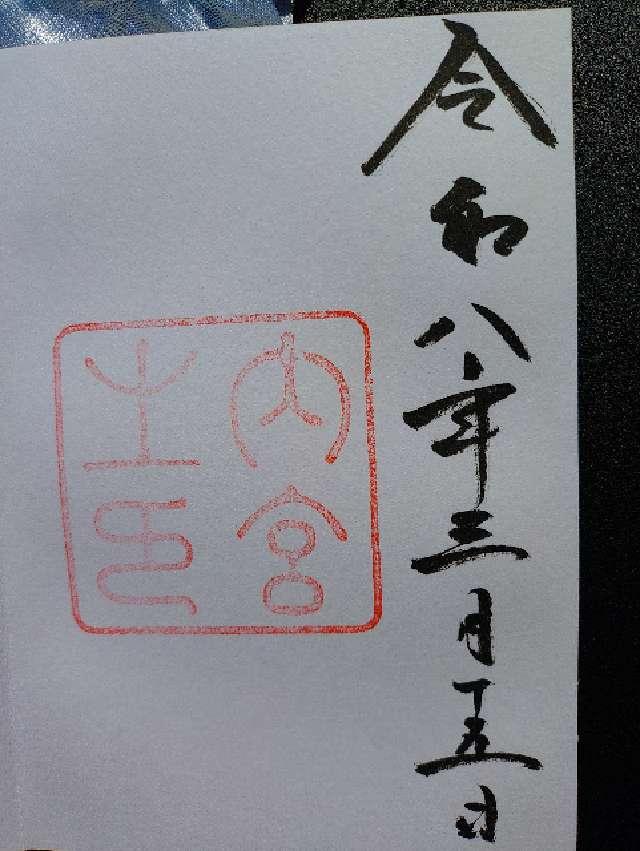 令和八年三月十五日
内宮
之印